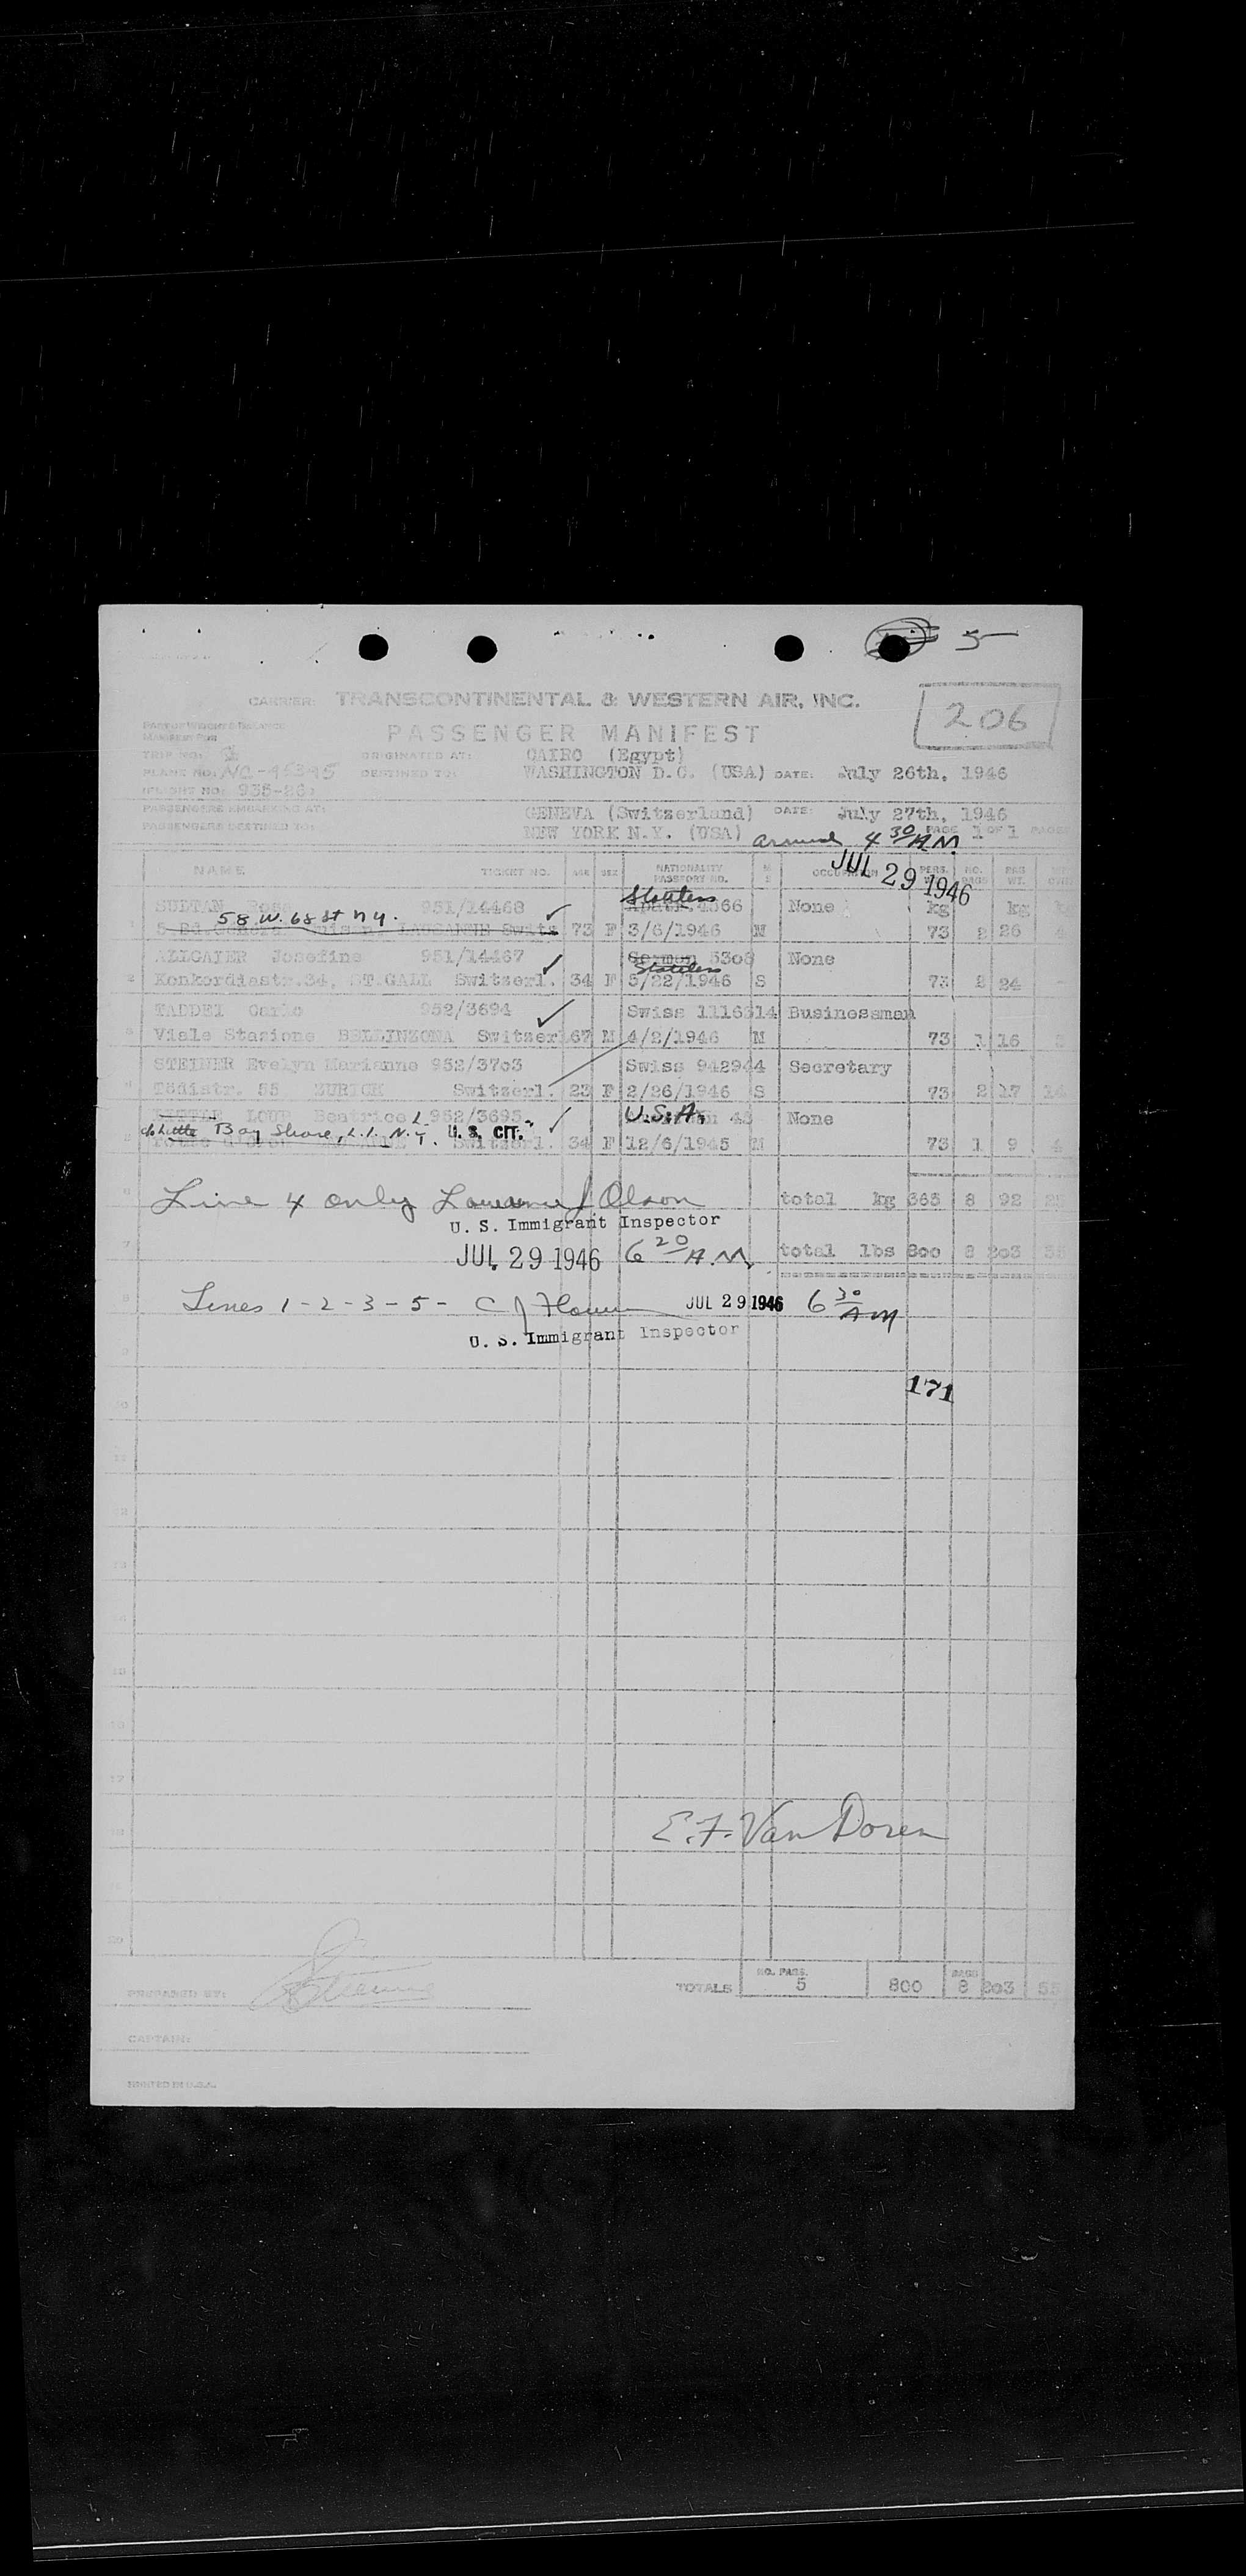 5
CARRIER: TRANSCONTINENTAL & WESTERN AIR, INC.
206
PASSENGER MANIFEST
TRIP NO:
ORIGINATED AT: CAIRO (Egypt)
PLANE NO: NC-45395 DESTINED TO: WASHINGTON D.C. (USA) DATE: July 26th, 1946
FLIGHT NO: 935-26
PASSENGERS EMBARKING AT: GENEVA (Switzerland) DATE: July 27th, 1946
PASSENGERS DESTINED TO: NEW YORK N.Y. (USA) PAGE 1 OF 1 PAGES
arrived 4 30 A.M.
JUL 29 1946
NAME TICKET NO. AGE SEX NATIONALITY PASSPORT NO. M S OCCUPATION PERS. WT. NO. BAGS BAG WT.
Stateless
SULTAN Rosa 951/14468 None kg kg
58 W. 68 St N Y.
LAUSANNE Switz 73 F 3/6/1946 M 73 2 26
ALLGAIER Josefine 951/14467 German 5308 None
Stateless
2 Konkordiastr.34, ST.GALL Switzerl. 34 F 5/22/1946 S 73 2 24
TADDEI Carlo 952/3694 Swiss 1116314 Businessman
3 Viale Stazione BELLINZONA Switzer 67 M 4/2/1946 M 73 1 16
STEINER Evelyn Marianne 952/3703 Swiss 942944 Secretary
4 Tödistr. 55 ZURICH Switzerl. 23 F 2/26/1946 S 73 2 17 14
LOUP Beatrice L. 952/3695 U.S.A. None
Bay Shore, L.I. N.Y. U. S. CIT.
Switzerl. 34 F 12/6/1945 M 73 1 9 4
6 Line 4 only Lawrence J Olson total kg 365 8 92
U. S. Immigrant Inspector
7 JUL 29 1946 6 20 A.M. total lbs 800 8 203
8 Lines 1-2-3-5- C J JUL 29 1946 6 30 AM
U. S. Immigrant Inspector
171
E.F. Van Doren
PREPARED BY:
TOTALS NO. PASS. 5 800 BAGS 8 203 55
CAPTAIN:
PRINTED IN U.S.A.